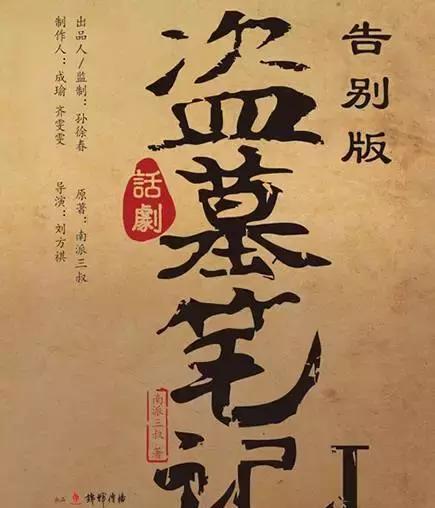 告别版
盗墓笔记 I
話劇
出品人/监制:孙徐春
制作人:成瑜 齐雯雯
原著:南派三叔
导演:刘方祺
南派三叔 著
出品 錦輝传播